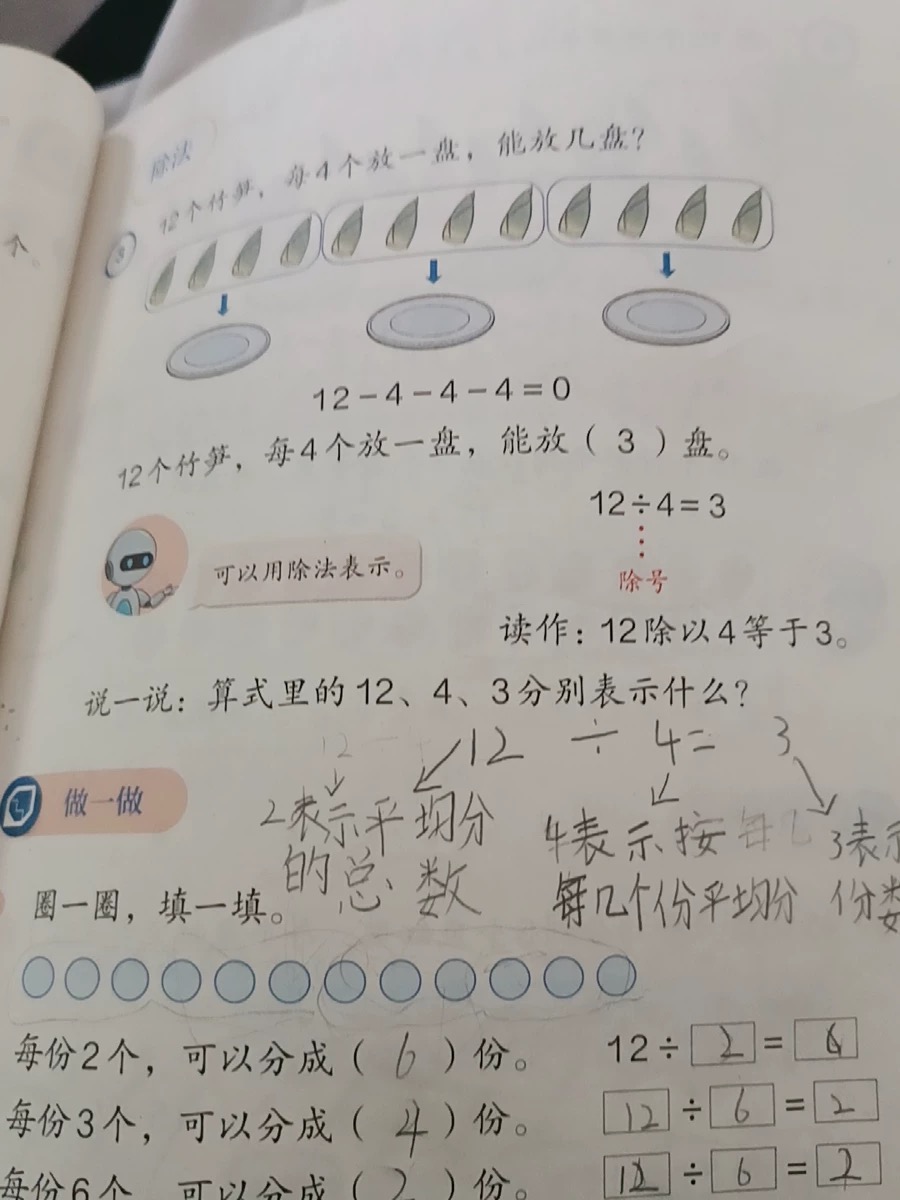 除法
个。
12个竹笋，每4个放一盘，能放几盘？
3
12－4－4－4＝0
12个竹笋，每4个放一盘，能放（3）盘。
12÷4＝3
除号
可以用除法表示。
读作：12除以4等于3。
说一说：算式里的12、4、3分别表示什么？
12 ÷ 4＝ 3
做一做
2表示平均分
的总数
4表示按
每几个份平均分
3表示
份数
圈一圈，填一填。
每份2个，可以分成（6）份。 12÷2＝6
每份3个，可以分成（4）份。 12÷6＝2
每份6个，可以分成（2）份。 12÷6＝2